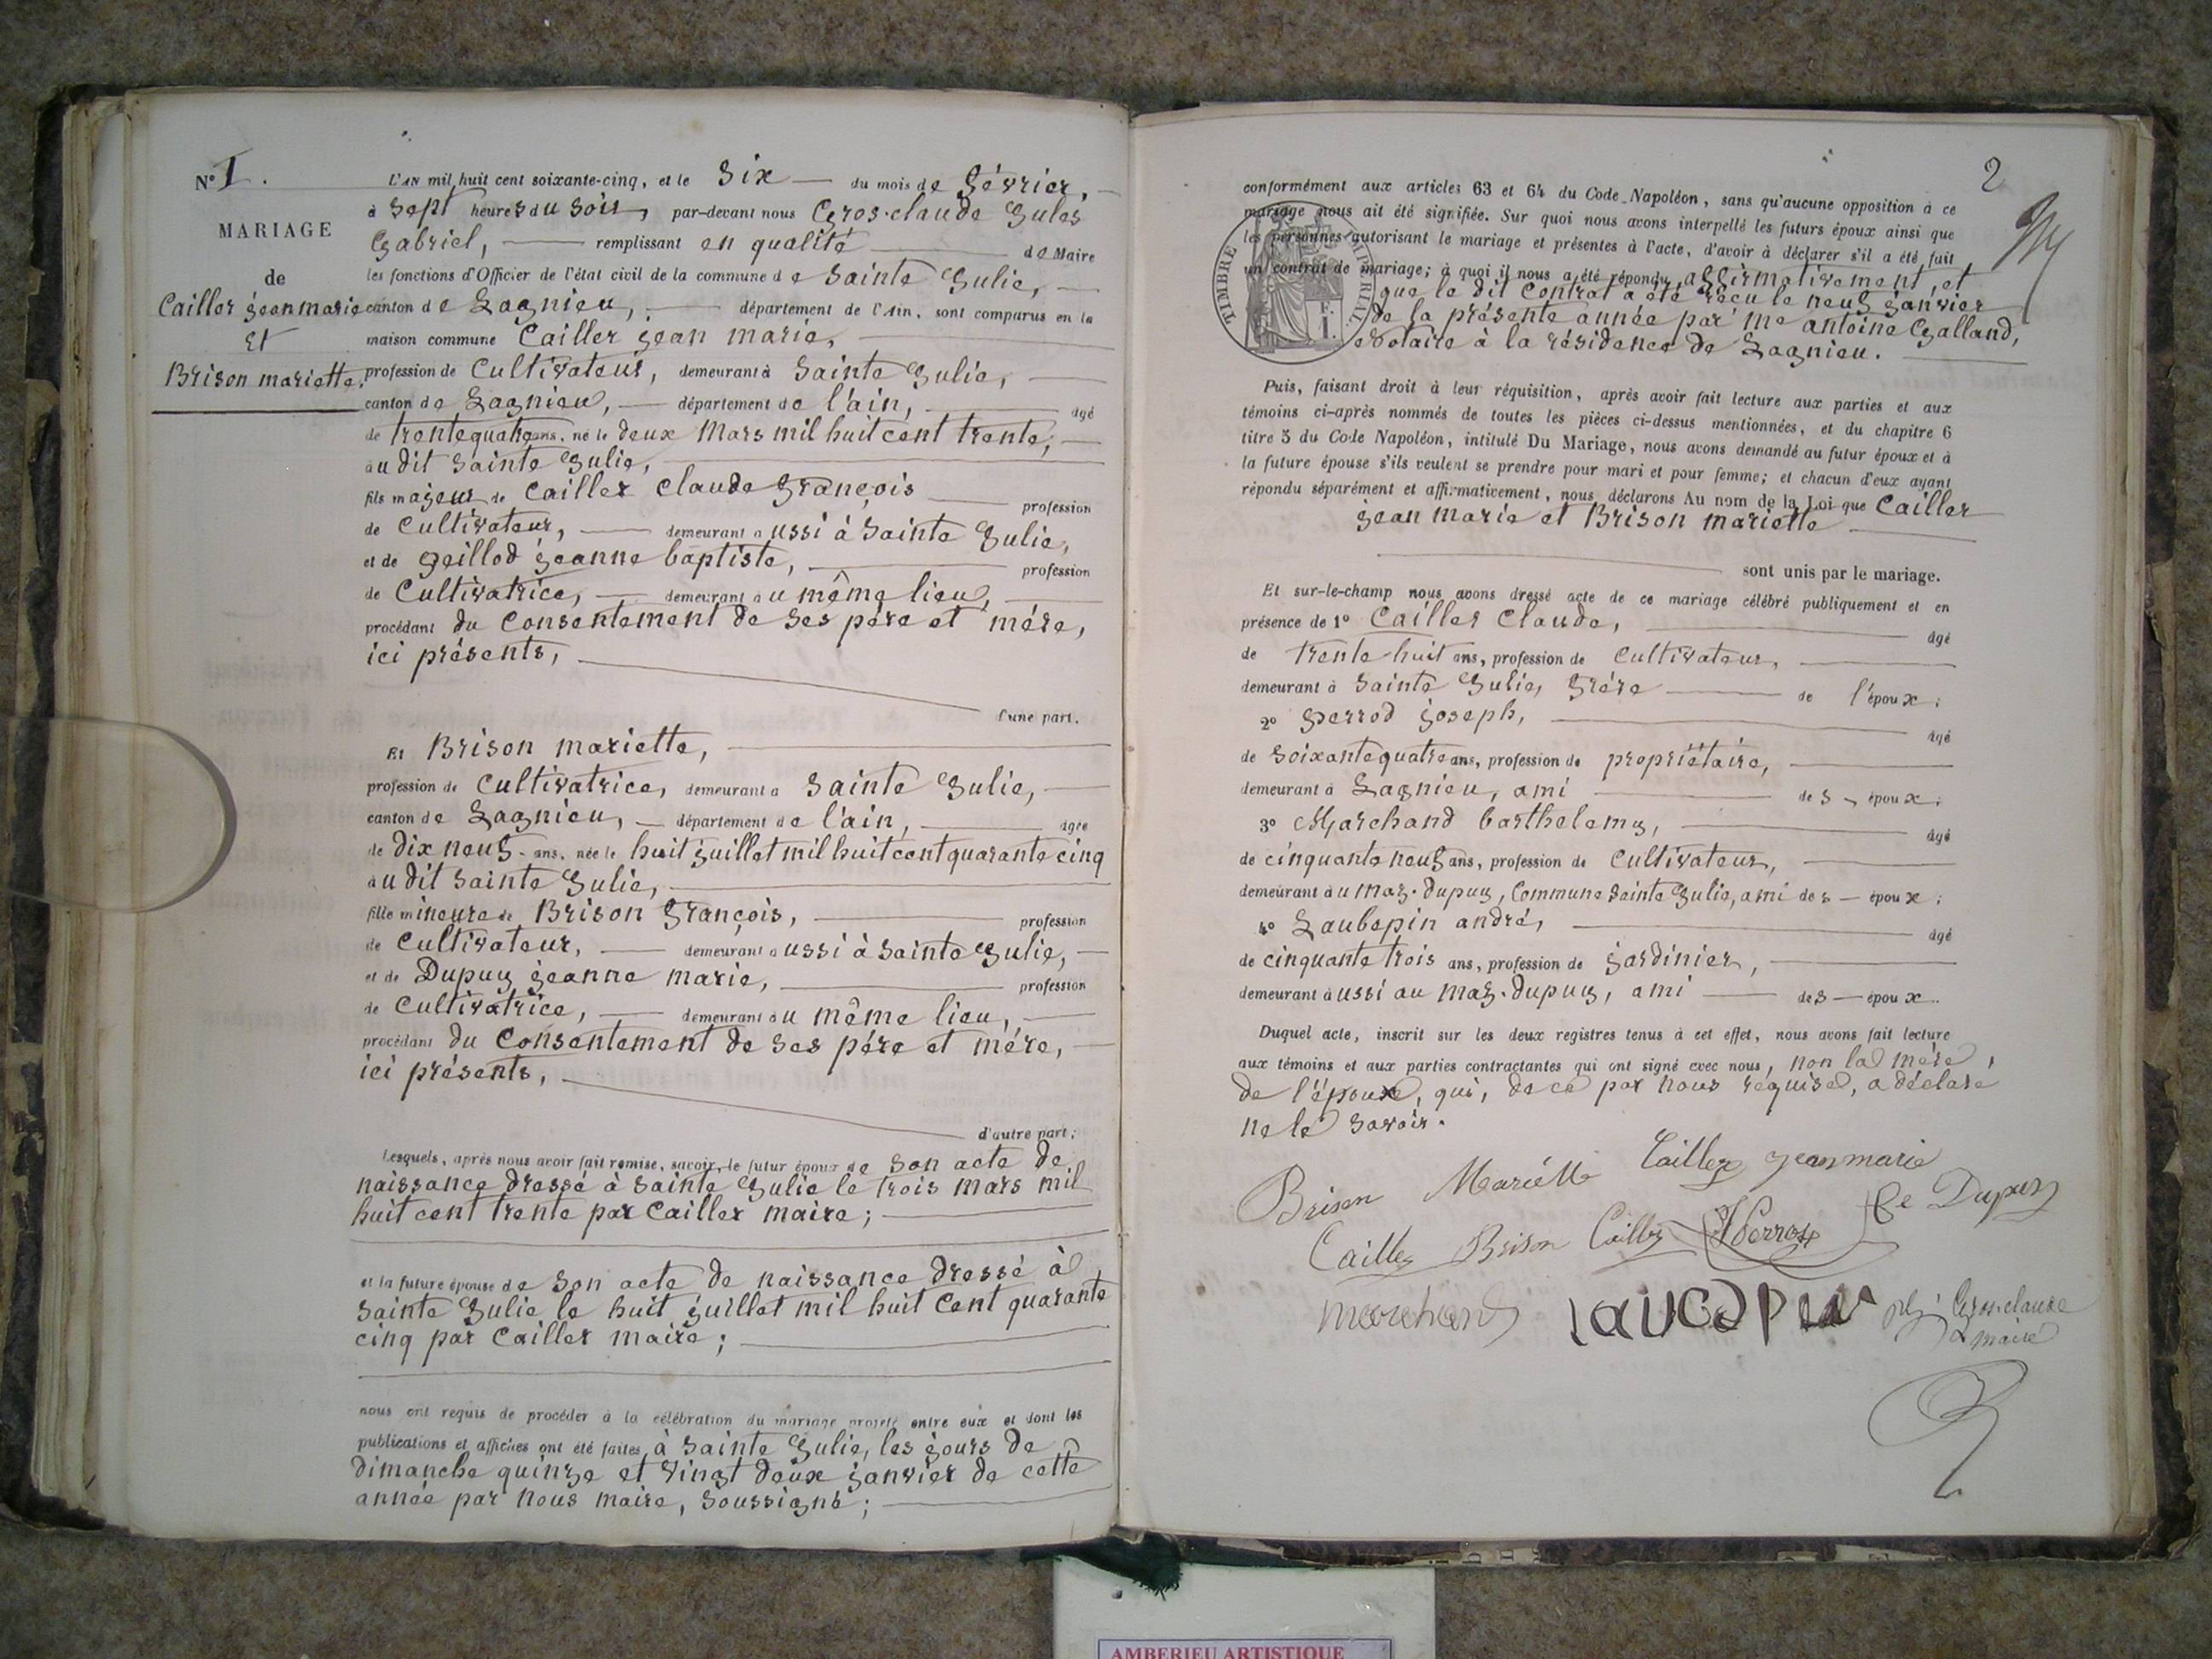 N° 1.
MARIAGE
de
Cailler jean marie
Et
Brison mariette.
L'AN mil huit cent soixante-cinq, et le Six du mois de Février,
à Sept heures du Soir, par-devant nous Gros-claude Jules
Gabriel, remplissant en qualité de Maire
les fonctions d'Officier de l'état civil de la commune de Sainte Julie,
canton de Lagnieu, département de l'Ain, sont comparus en la
maison commune Cailler jean marie,
profession de Cultivateur, demeurant à Sainte Julie,
canton de Lagnieu, département de l'ain, âgé
de trente quatre ans, né le deux Mars mil huit cent trente,
au dit Sainte Julie,
fils majeur de Cailler Claude François profession
de Cultivateur, demeurant aussi à Sainte Julie,
et de jeanne baptiste, profession
de Cultivatrice, demeurant au même lieu,
procédant du Consentement de ses père et mère,
ici présents,
d'une part.
Et Brison mariette,
profession de Cultivatrice, demeurant à Sainte Julie,
canton de Lagnieu, département de l'ain, âgée
de dix neuf ans, née le huit juillet mil huit cent quarante cinq
au dit Sainte Julie,
fille mineure de Brison François, profession
de Cultivateur, demeurant aussi à Sainte Julie,
et de Dupuy jeanne marie, profession
de Cultivatrice, demeurant au même lieu,
procédant du Consentement de ses père et mère,
ici présents,
d'autre part;
Lesquels, après nous avoir fait remise, savoir, le futur époux de Son acte de
naissance dressé à Sainte Julie le trois mars mil
huit cent trente par Cailler maire;
et la future épouse de Son acte de naissance dressé à
Sainte Julie le huit juillet mil huit Cent quarante
cinq par Cailler maire;
nous ont requis de procéder à la célébration du mariage projeté entre eux et dont les
publications et affiches ont été faites à Sainte Julie, les jours de
dimanche quinze et vingt deux janvier de cette
année par nous maire, Soussigné;
2
conformément aux articles 63 et 64 du Code Napoléon, sans qu'aucune opposition à ce
mariage nous ait été signifiée. Sur quoi nous avons interpellé les futurs époux ainsi que
les personnes autorisant le mariage et présentes à l'acte, d'avoir à déclarer s'il a été fait
un contrat de mariage; à quoi il nous a été répondu affirmativement, et
que le dit Contrat a été reçu le neuf janvier
de la présente année par me antoine Galland,
Notaire à la résidence de Lagnieu.
TIMBRE IMPERIAL
Puis, faisant droit à leur réquisition, après avoir fait lecture aux parties et aux
témoins ci-après nommés de toutes les pièces ci-dessus mentionnées, et du chapitre 6
titre 5 du Code Napoléon, intitulé Du Mariage, nous avons demandé au futur époux et à
la future épouse s'ils veulent se prendre pour mari et pour femme; et chacun d'eux ayant
répondu séparément et affirmativement, nous déclarons Au nom de la Loi que Cailler
jean marie et Brison mariette
sont unis par le mariage.
Et sur-le-champ nous avons dressé acte de ce mariage célébré publiquement et en
présence de 1° Cailler Claude, âgé
de trente-huit ans, profession de Cultivateur,
demeurant à Sainte Julie, Frère de l'époux;
2° Perrod joseph, âgé
de Soixante quatre ans, profession de propriétaire,
demeurant à Lagnieu, ami des époux;
3° Marchand barthelemy, âgé
de cinquante neuf ans, profession de Cultivateur,
demeurant au maz-dupuy, Commune Sainte Julie, ami des époux;
4° Laubepin andré, âgé
de cinquante trois ans, profession de jardinier,
demeurant aussi au maz-dupuy, ami des époux.
Duquel acte, inscrit sur les deux registres tenus à cet effet, nous avons fait lecture
aux témoins et aux parties contractantes qui ont signé avec nous, non la mère
de l'époux, qui, de ce par nous requise, a déclaré
ne le Savoir.
Brison Mariétte Cailler jean marie
Cailler Brison Cailler Perrod Dupuy
marchand Gros-claude
maire
AMBERIEU ARTISTIQUE